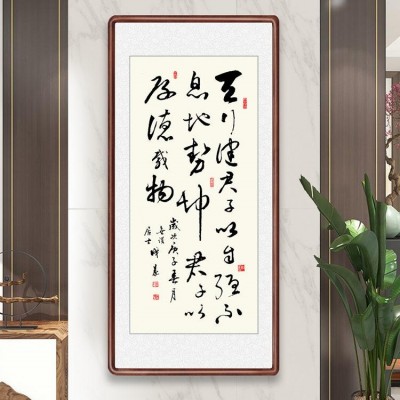 天行健君子以自强不
息地势坤君子以
厚德载物
歲次庚子春月
居士